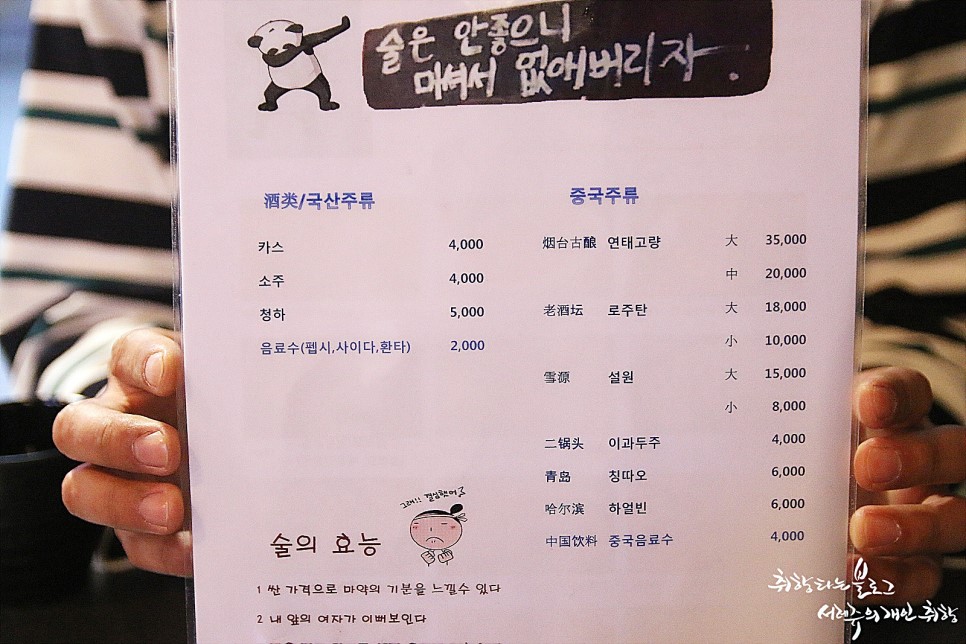 술은 안좋으니
마셔서 없애버리자.
酒类/국산주류
카스 4,000
소주 4,000
청하 5,000
음료수(펩시,사이다,환타) 2,000
중국주류
烟台古酿 연태고량 大 35,000
中 20,000
老酒坛 로주탄 大 18,000
小 10,000
雪源 설원 大 15,000
小 8,000
二锅头 이과두주 4,000
青岛 칭따오 6,000
哈尔滨 하얼빈 6,000
中国饮料 중국음료수 4,000
그래!! 결심했어
술의 효능
1 싼 가격으로 마약의 기분을 느낄수 있다
2 내 앞의 여자가 이뻐보인다
취향타는 블로그
서레주의 개인 취향